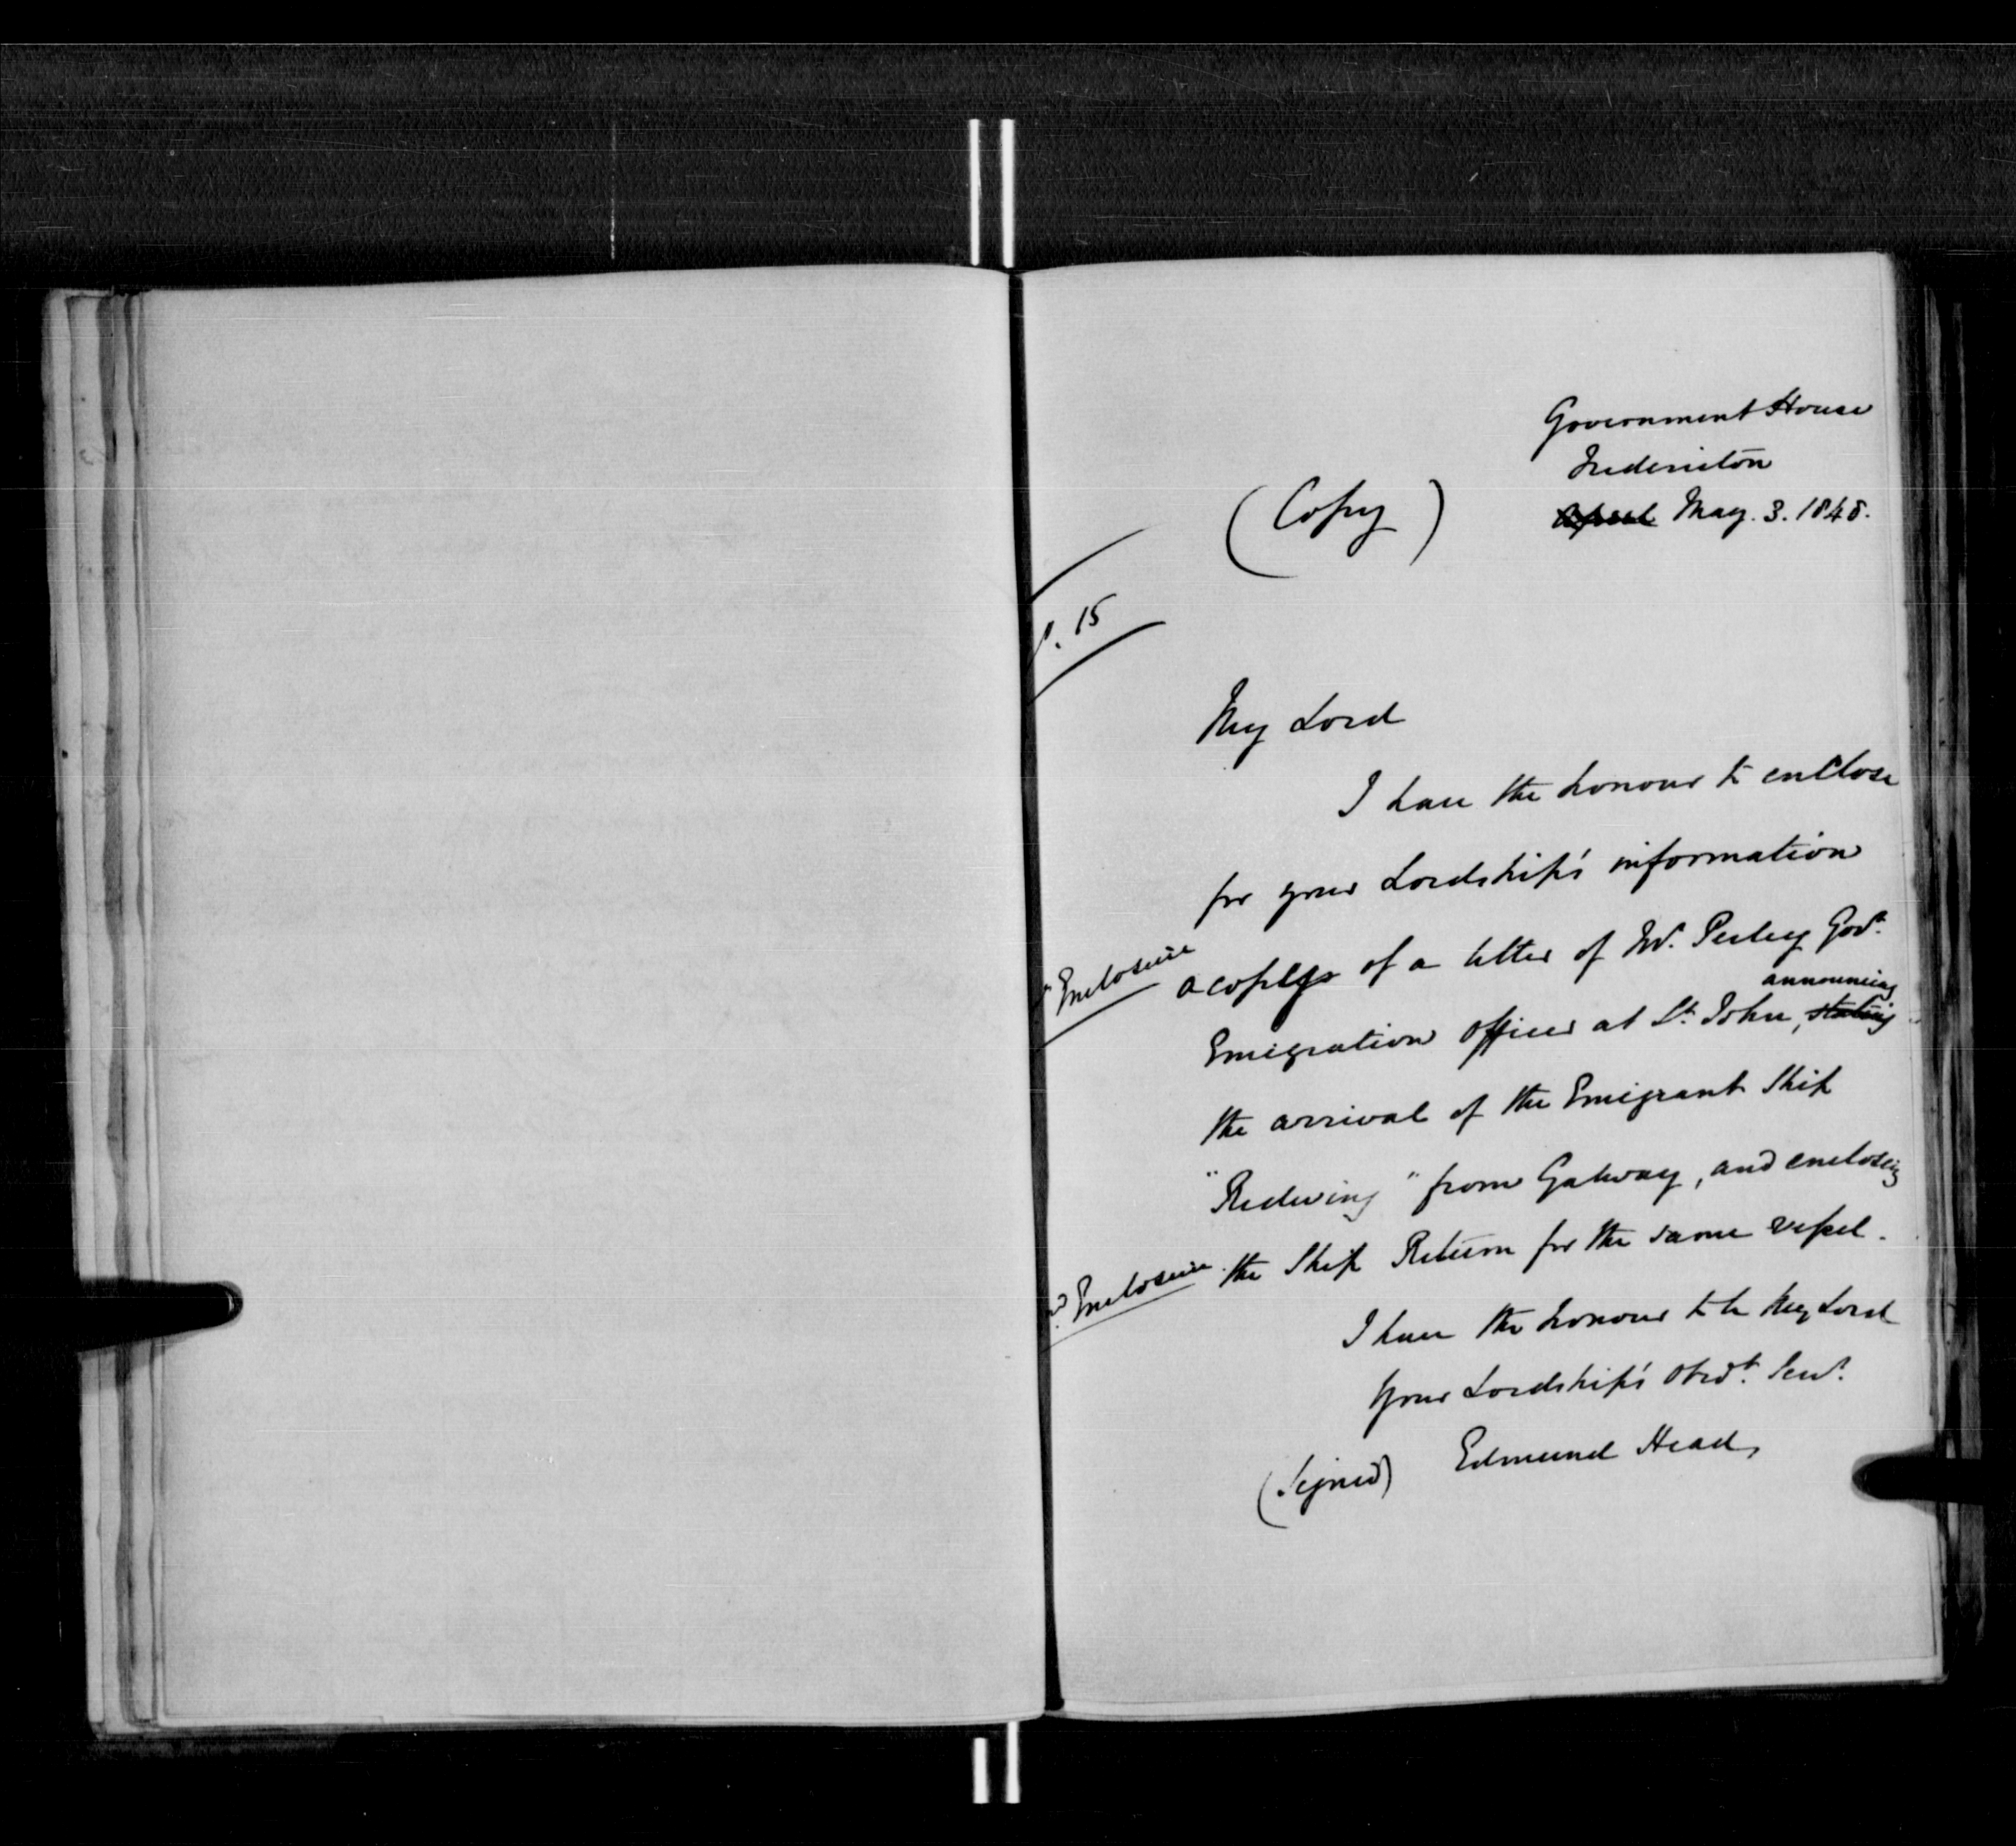 Government House
Fredericton
(Copy)
April May. 3. 1848.
p. 15
My Lord
I have the honour to enclose
for your Lordship's information
Enclosure
a copy of a letter of Mr. Perley Govt.
announcing
Emigration Officer at St. John, stating
the arrival of the Emigrant Ship
"Redwing" from Galway, and enclosing
Enclosure
the Ship Return for the same vessel.
I have the honour to be My Lord
Your Lordship's obedt. Servt.
(Signed) Edmund Head,